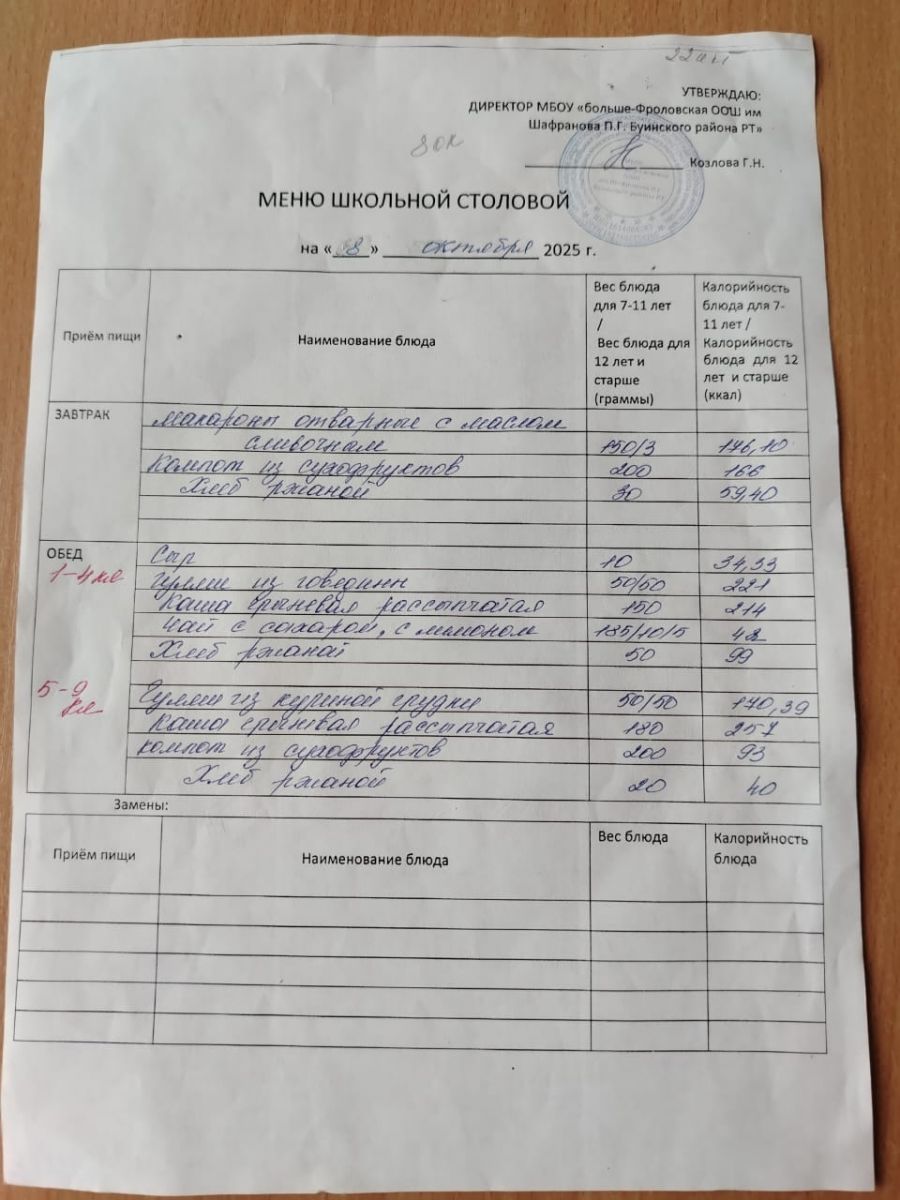 УТВЕРЖДАЮ:
ДИРЕКТОР МБОУ «больше-Фроловская ООШ им
Шафранова П.Г. Буинского района РТ»
8 ок
Козлова Г.Н.
МЕНЮ ШКОЛЬНОЙ СТОЛОВОЙ
на « 8 » октября 2025 г.
Приём пищи
Наименование блюда
Вес блюда
для 7-11 лет
/
Вес блюда для
12 лет и
старше
(граммы)
Калорийность
блюда для 7-
11 лет /
Калорийность
блюда для 12
лет и старше
(ккал)
ЗАВТРАК
Макароны отварные с маслом
сливочным 150/3 176,10
Компот из сухофруктов 200 166
Хлеб ржаной 30 59,40
ОБЕД
1-4 кл
Сыр 10 34,33
Гуляш из говядины 50/50 221
Каша гречневая рассыпчатая 150 214
Чай с сахаром, с лимоном 185/10/5 42
Хлеб ржаной 50 99
5-9
кл
Гуляш из куриной грудки 50/50 170,39
Каша гречневая рассыпчатая 180 257
компот из сухофруктов 200 93
Хлеб ржаной 20 40
Замены:
Приём пищи Наименование блюда Вес блюда Калорийность
блюда